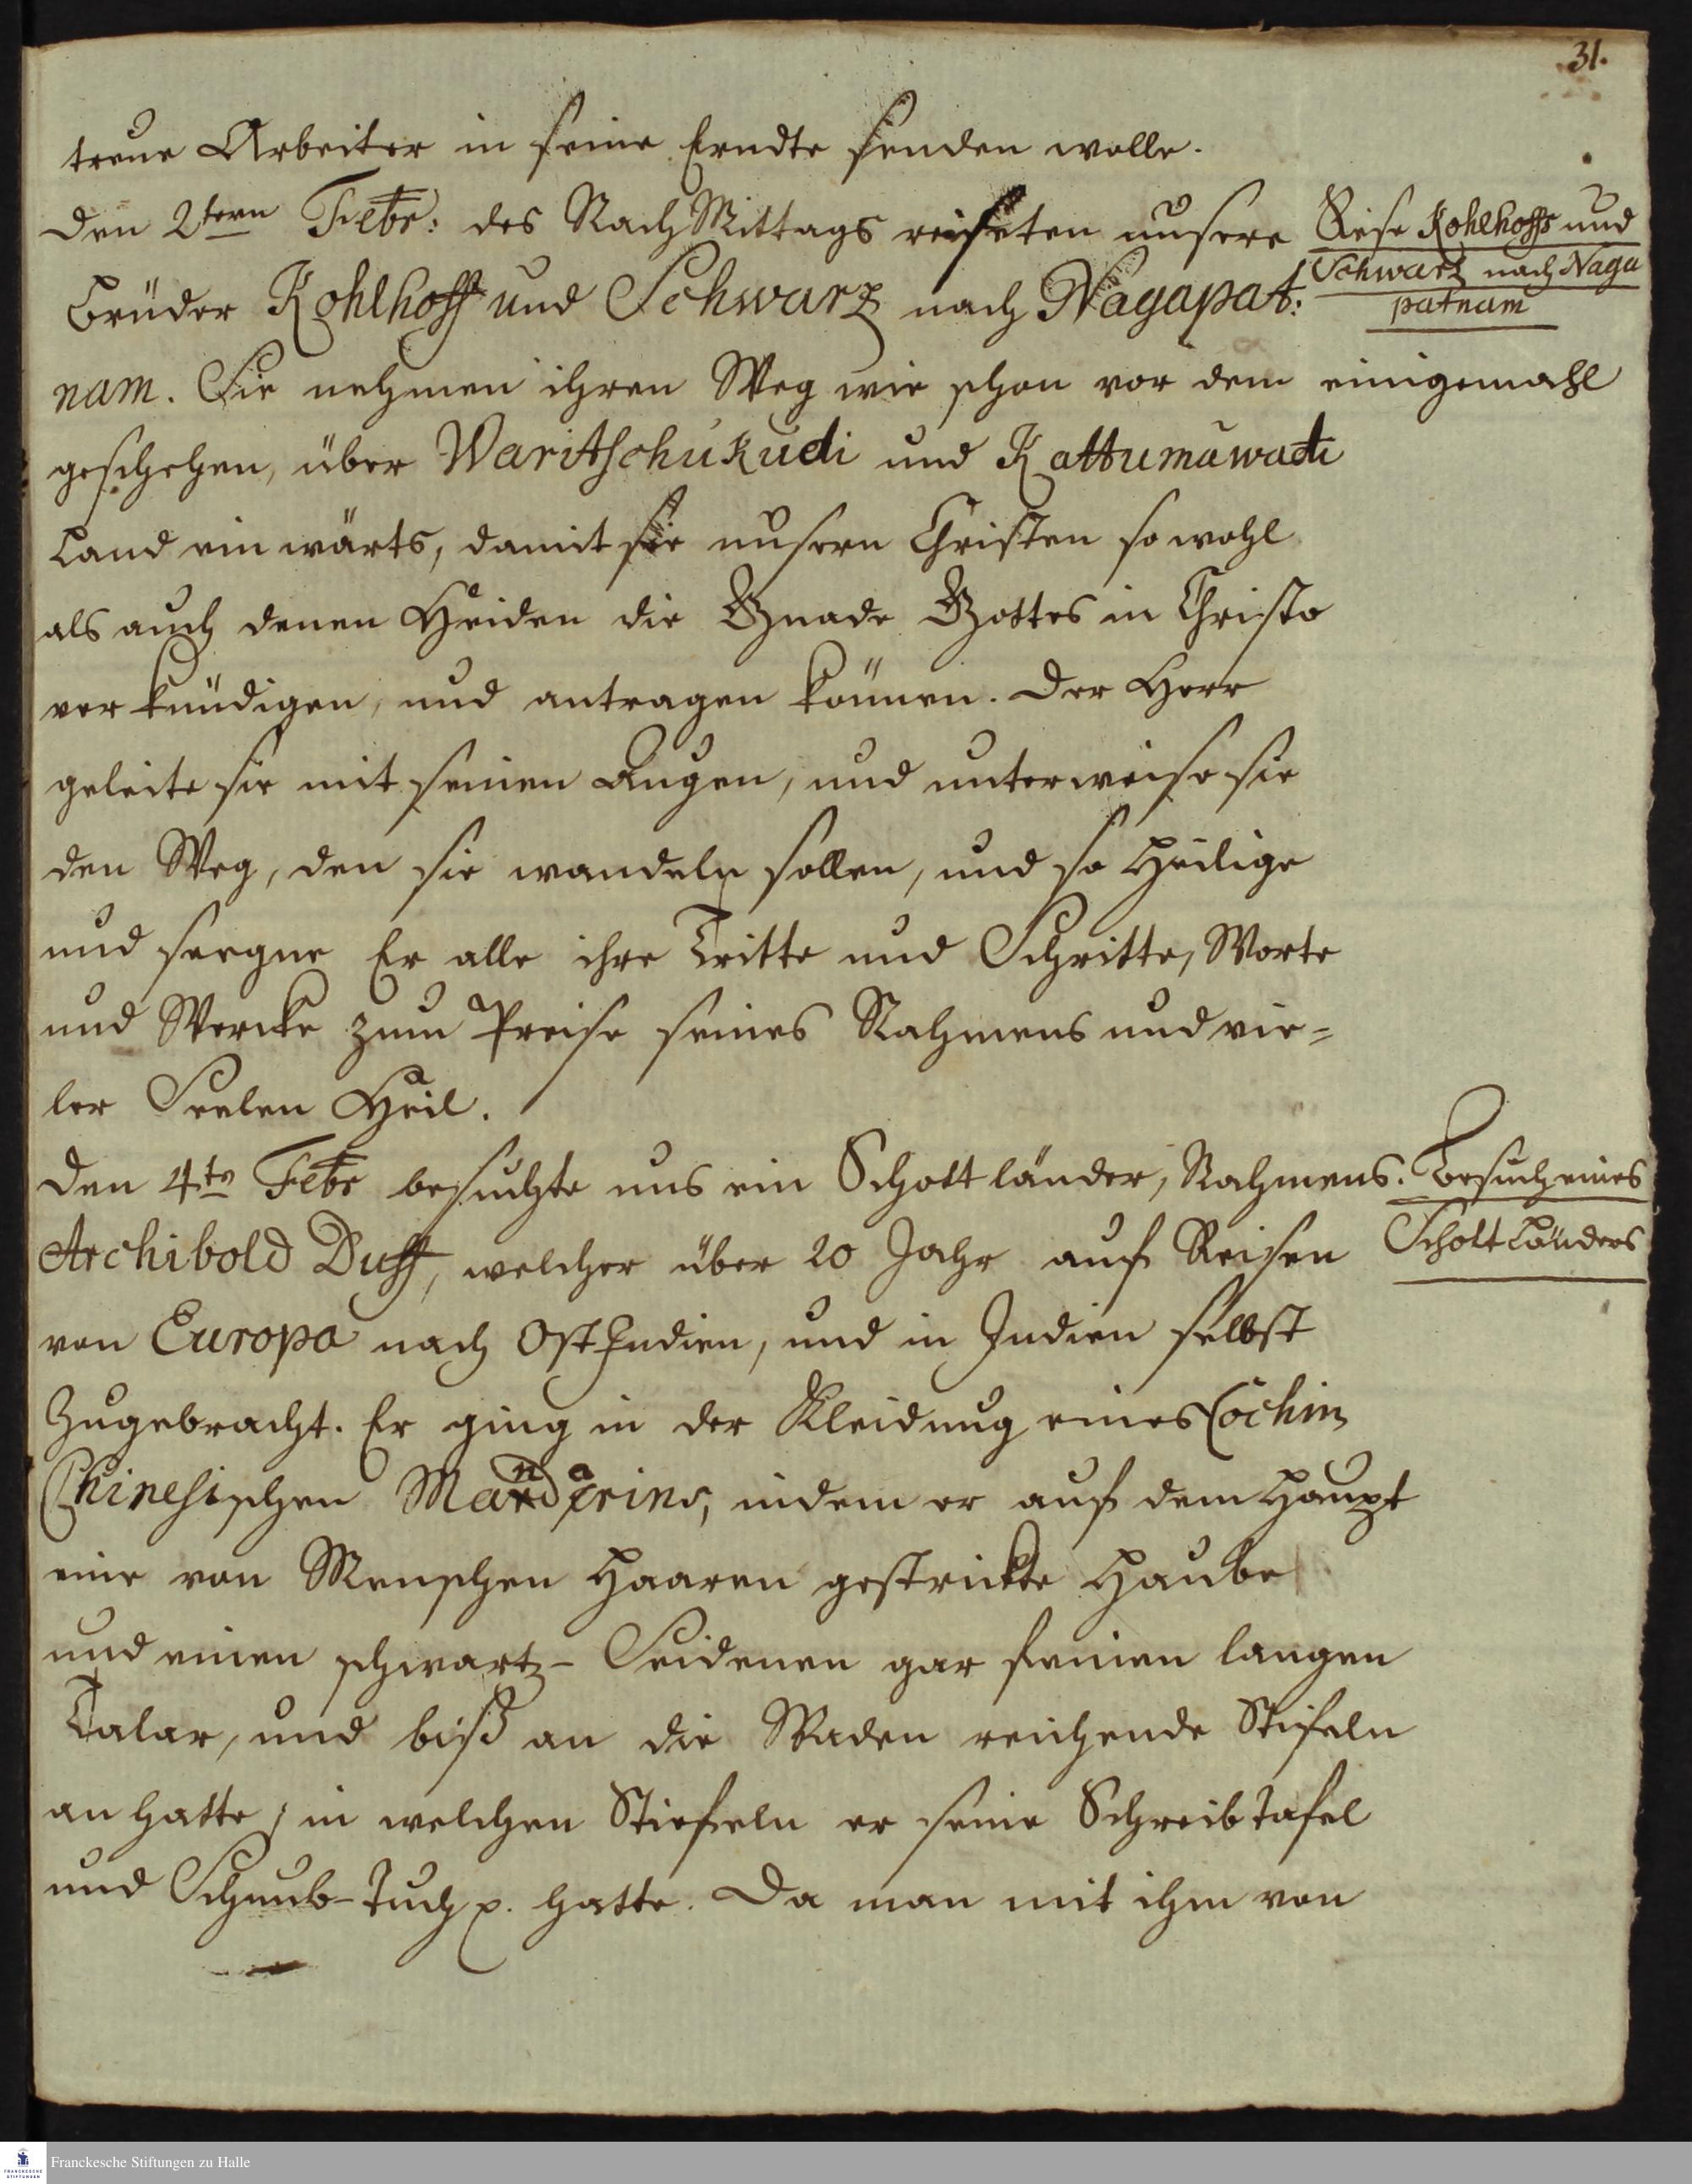 31.
treue Arbeiter in seine Erndte senden wolle.
Den 2tern Febr: des NachMittags reiseten unsere
Reise Kohlhoffs und
Schwartz nach Naga
patnam
Brüder Kohlhoff und Schwarz nach Nagapat:
nam. Sie nehmen ihren Weg wie schon vor dem einigemahl
geschehen, über Waritschukudi und Kattumawadi
Land ein wärts, damit sie unsern Christen so wohl
als auch denen Heiden die Gnade Gottes in Christo
verkündigen, und antragen können. Der Herr
geleite sie mit seinen Augen, und unterweise sie
den Weg, den sie wandeln sollen, und so Heilige
und seegne Er alle ihre Tritte und Schritte, Worte
und Wercke zum Preise seines Nahmens und vie=
ler Seelen Heil.
Den 4ten Febr besuchte uns ein Schottländer, Nahmens
Besuch eines
Schottländers
Archibold Duff, welcher über 20 Jahr auf Reisen
von Europa nach OstIndien, und in Indien selbst
Zugebracht. Er ging in der Kleidung eines Cochin
Chinesischen Mandarins, indem er auf dem Haupt
eine von Menschen Haaren gestrickte Haube
und einen schwartz-Seidenen gar feinen langen
Talar, und biß an die Waden reichende Stifeln
an hatte, in welchen Stiefeln er seine Schreibtafel
und Schnub-Tuch p. hatte. Da man mit ihm von
Franckesche Stiftungen zu Halle
FRANCKESCHE
STIFTUNGEN